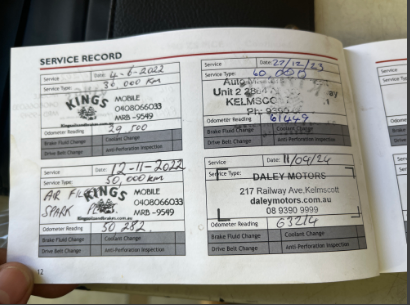 SERVICE RECORD
Service Date: 4-6-2022
Service Type: 30 000 KM
KINGS MOBILE
0408066033
MRB -9549
Odometer Reading 29 500
Brake Fluid Change Coolant Change
Drive Belt Change Anti-Perforation Inspection
Service Date: 12-11-2022
Service Type: 50,000 km
AIR FILTER
SPARK
KINGS MOBILE
0408066033
MRB -9549
Odometer Reading 50 282
Brake Fluid Change Coolant Change
Drive Belt Change Anti-Perforation Inspection
12
Service Date: 27/12/23
Service Type: 60,000
Unit 2
KELMSCOTT
Ph:
Odometer Reading 61449
Brake Fluid Change Coolant Change
Drive Belt Change Anti-Perforation Inspection
Service Date: 11/09/24
Service Type:
DALEY MOTORS
217 Railway Ave, Kelmscott
daleymotors.com.au
08 9390 9999
Odometer Reading 63214
Brake Fluid Change Coolant Change
Drive Belt Change Anti-Perforation Inspection